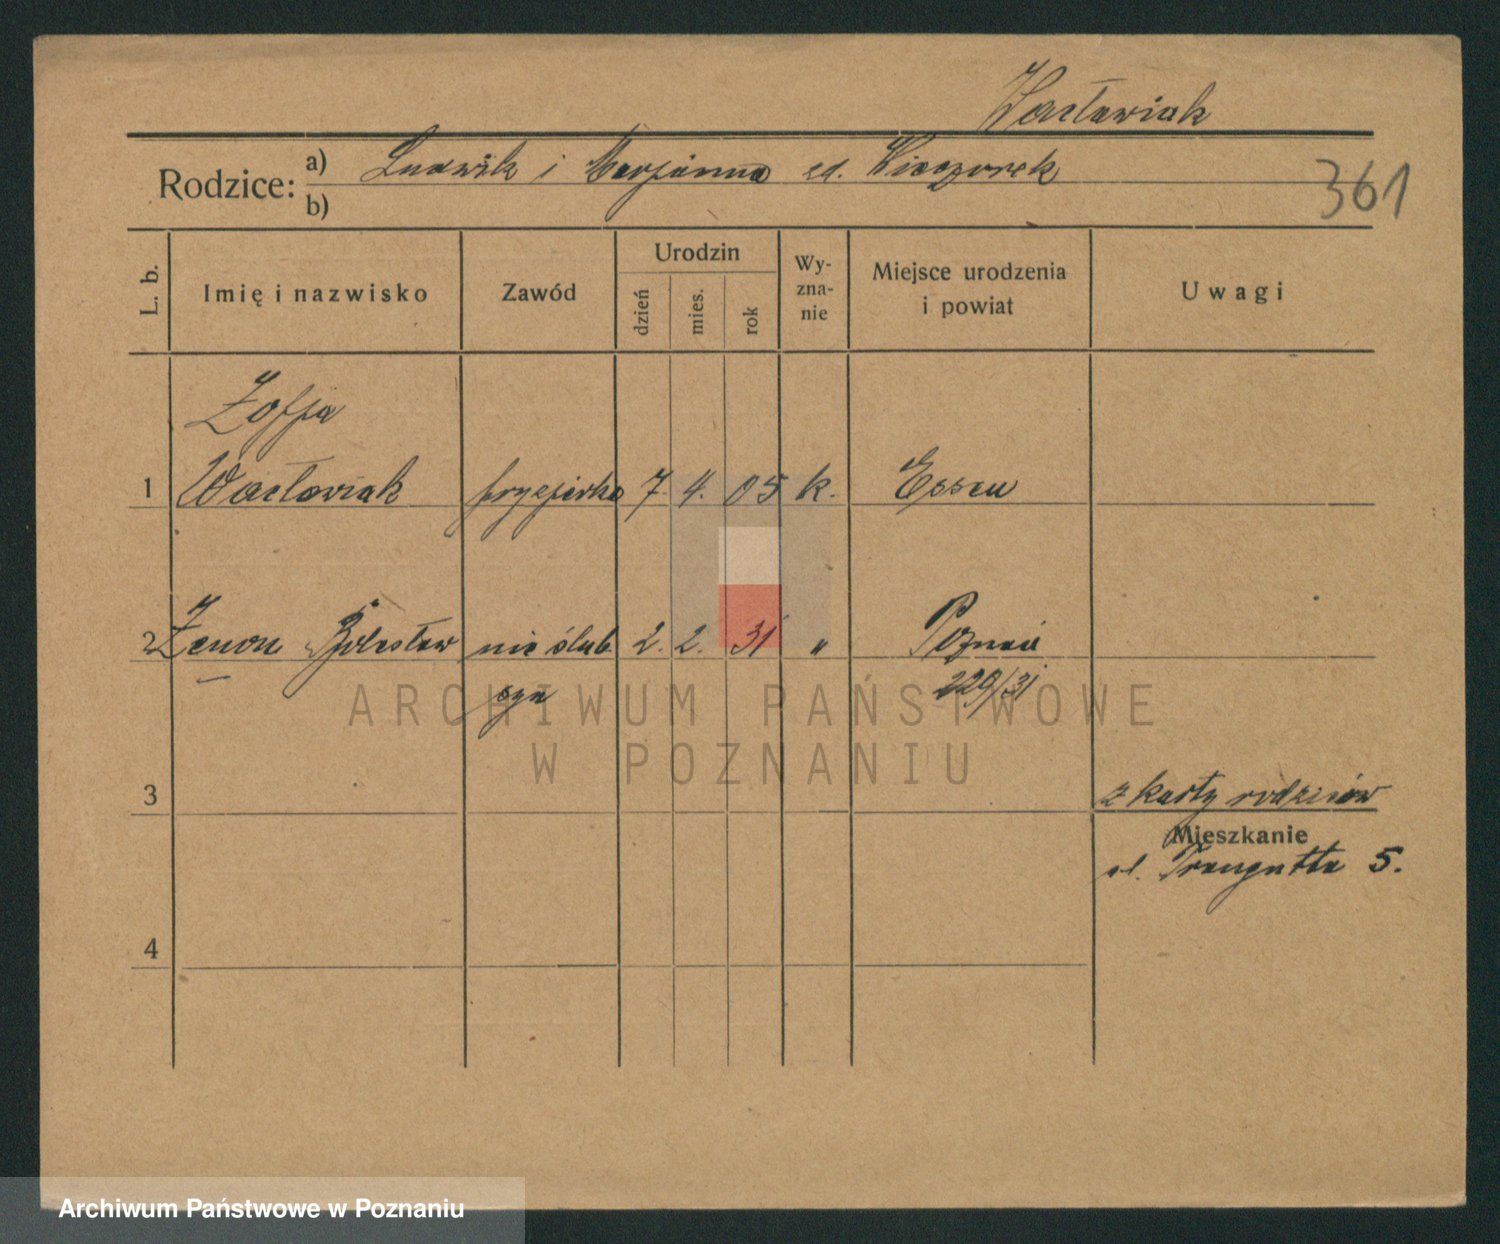 Wacławiak
Rodzice: a) Ludwik i Marjanna z d. Wieczorek
b)
361
L. b.
Imię i nazwisko
Zawód
Urodzin
dzień
mies.
rok
Wy-
zna-
nie
Miejsce urodzenia
i powiat
Uwagi
Zofja
1 Wacławiak fryzjerka 7. 4. 05 k. Essen
2 Zenon Bolesław nieślub. 2. 2. 31 " Poznań
syn 229/31
ARCHIWUM PAŃSTWOWE
W POZNANIU
3
z karty rodziców
Mieszkanie
ul. Traugutta 5.
4
Archiwum Państwowe w Poznaniu